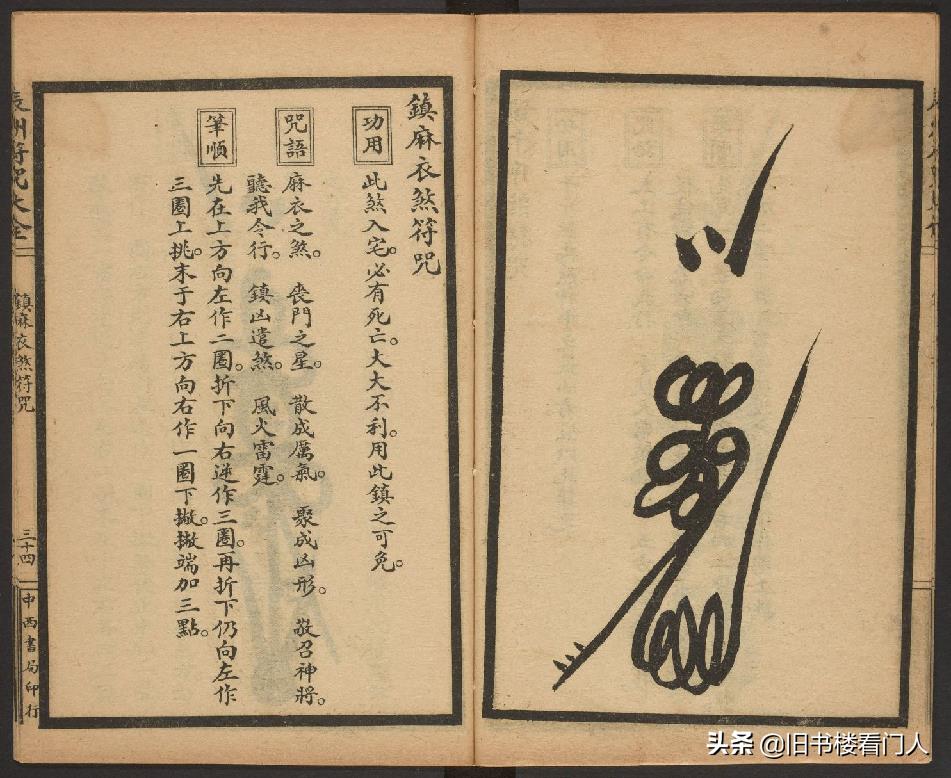 鎮麻衣煞符咒
功用
此煞入宅。必有死亡。大大不利。用此鎮之可免。
咒語
麻衣之煞。喪門之星。散成厲氣。聚成凶形。敬召神將。
聽我令行。鎮凶遣煞。風火雷霆。
筆順
先在上方向左作二圈。折下向右逆作三圈。再折下仍向左作
三圈上挑。末于右上方向右作一圈下撇。撇端加三點。
州符咒大全
鎮麻衣煞符咒
三十四
中西書局印行
头条 @旧书楼看门人